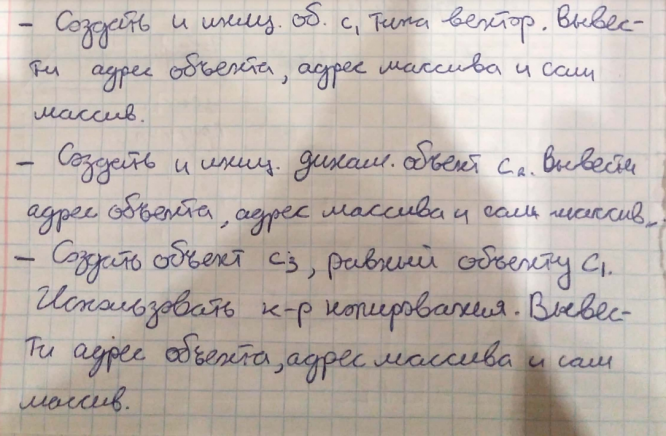 - Создать и иниц. об. c₁ типа вектор. Вывес-
ти адрес объекта, адрес массива и сам
массив.
- Создать и иниц. динам. объект c₂. Вывести
адрес объекта, адрес массива и сам массив.
- Создать объект c₃, равный объекту c₁.
Использовать к-р копирования. Вывес-
ти адрес объекта, адрес массива и сам
массив.